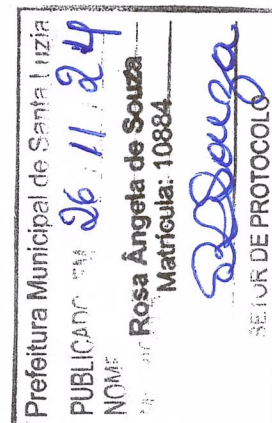 Prefeitura Municipal de Santa Luzia
PUBLICADO EM 26 11 24
NOME
Rosa Ângela de Souza
Matrícula: 10884
RASouza
SETOR DE PROTOCOLO